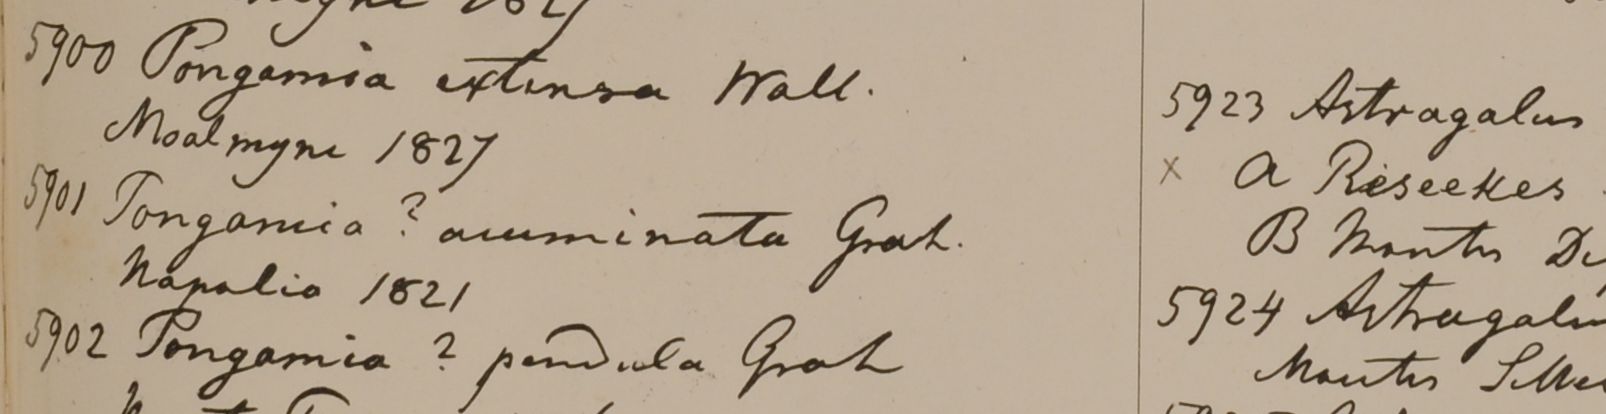 1827
5900 Pongamia extensa Wall.
Moalmyne 1827
5901 Pongamia ? acuminata Grah.
Napalia 1821
5902 Pongamia ? pendula Grah
5923 Astragalus
x a Reseekes
B Montes
5924
Montes